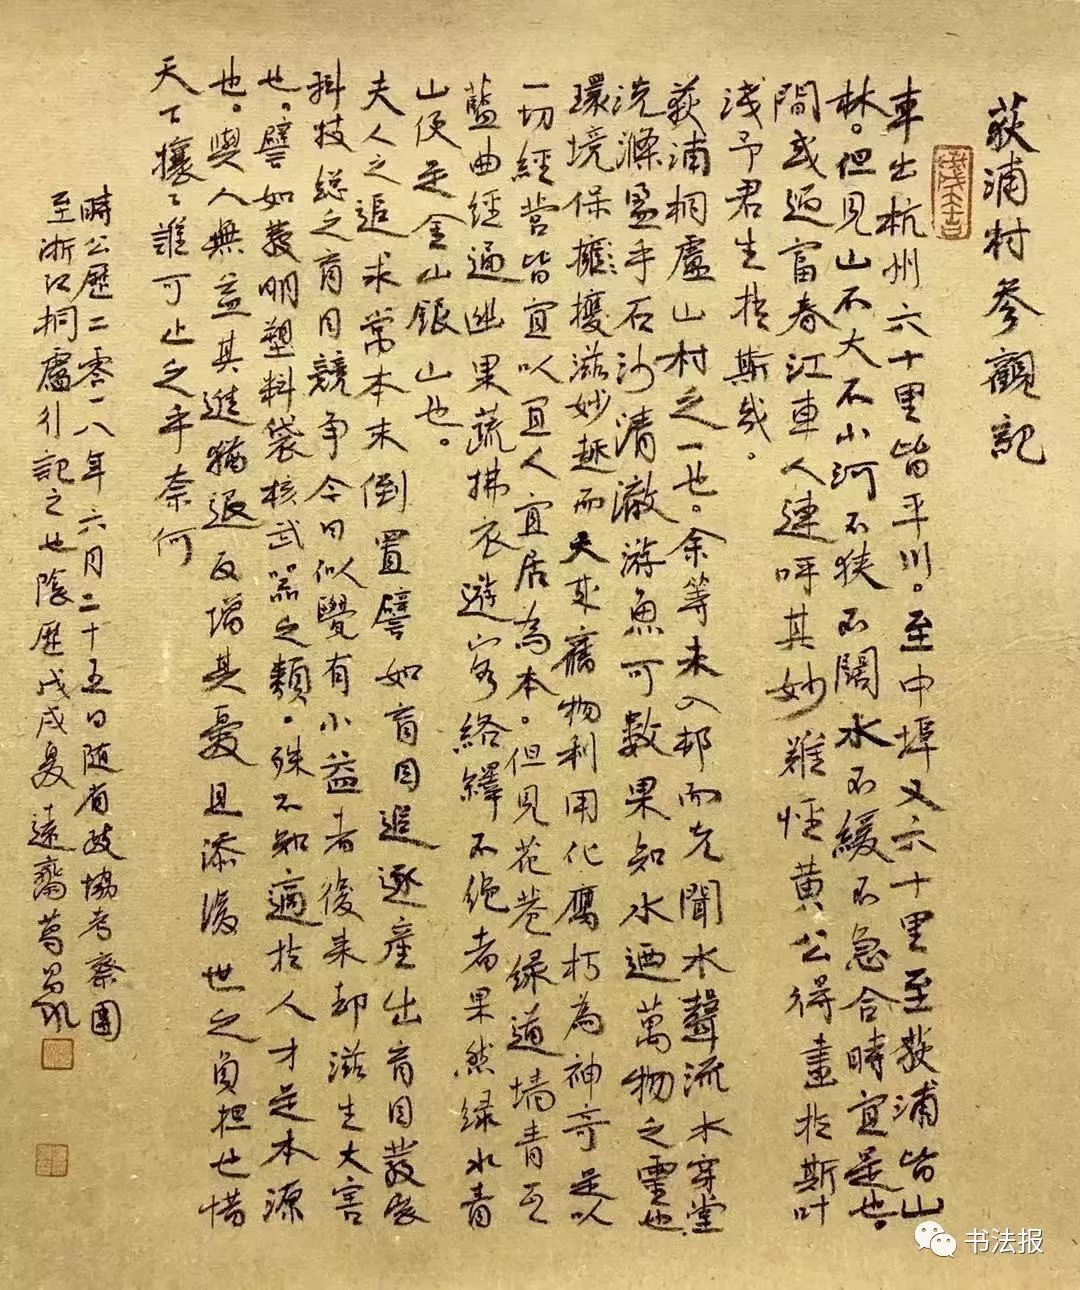 荻浦村參觀記
車出杭州六十里皆平川。至中埠又六十里至荻浦皆山
林。但見山不大不小河不狹不闊水不緩不急合時宜是也。
間或過富春江車人連呼其妙難怪黄公得畫於斯叶
浅予君生於斯哉。
荻浦桐廬山村之一也。余等未入邨而先聞水聲流水穿堂
洗滌盈手石沙清澈游魚可数果知水迺萬物之靈也
環境保護滋妙趣而大策舊物利用化腐朽為神奇足以
一切經营皆宜以宜人宜居為本。但見花巷绿道墙青瓦
藍曲經通幽果蔬拂衣遊客絡繹不绝者果然绿水青
山便是金山銀山也。
夫人之追求常本末倒置譬如盲目追逐産出盲目發展
科技総之盲目競争今日似覺有小益者後来却滋生大害
也。譬如發明塑料袋核武器之類。殊不知適於人才是本源
也。與人無益其進猶退反增其憂且添後世之負担也惜
天下攘々誰可止之乎奈何
時公歷二零一八年六月二十五日随省政協考察團
至浙江桐廬引記之也陰歷戊戌夏遠齋
书法报